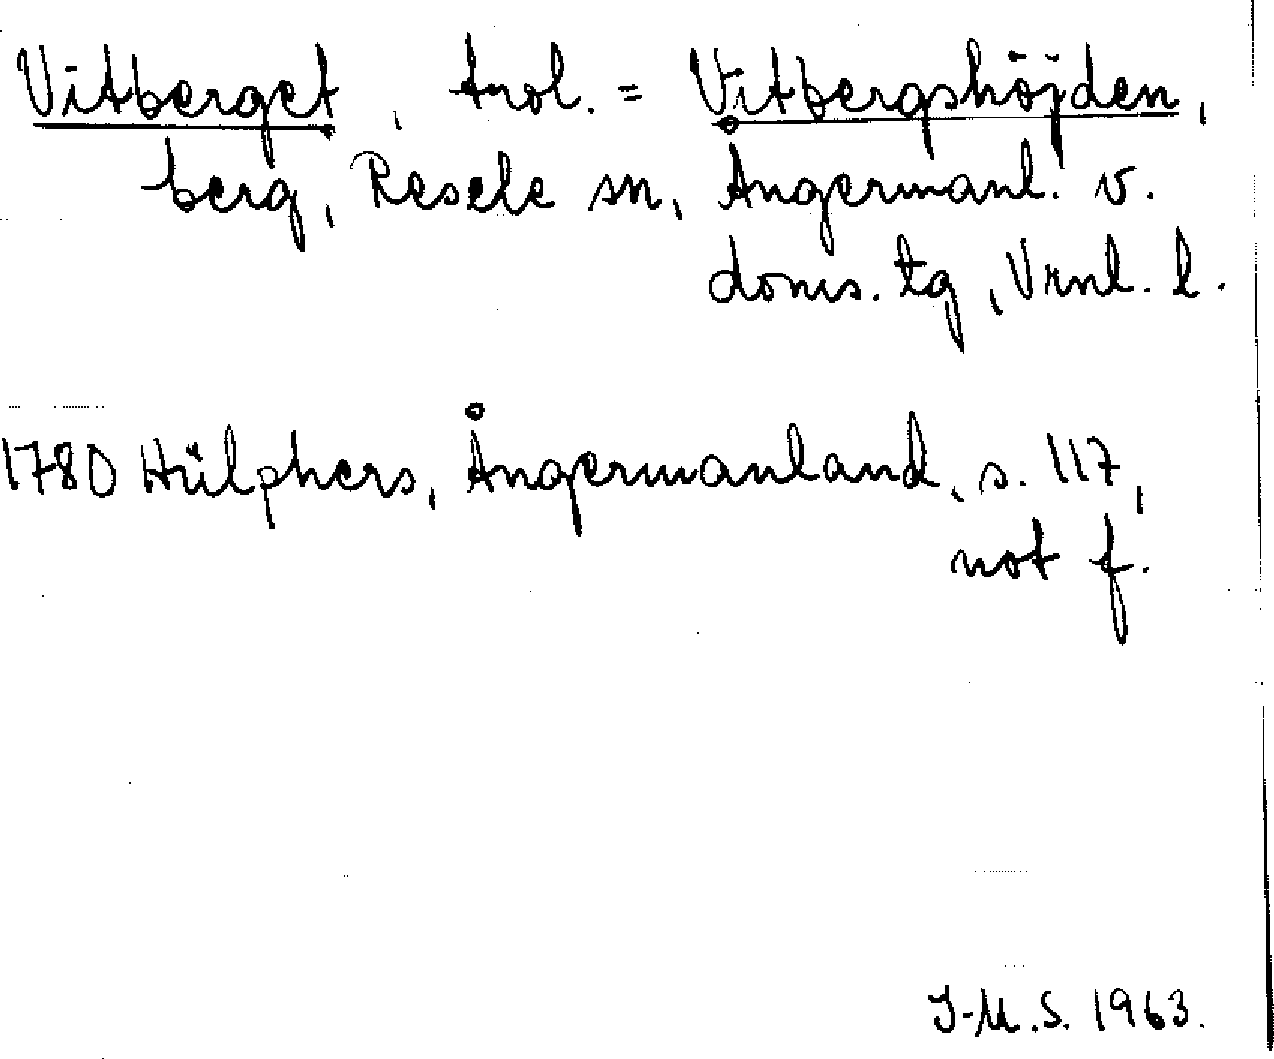 Vitberget, trol. = Vitbergshöjden,
berg, Resele sn, Ångermanl. v.
doms. tg, Vrnl. l.
1780 Hülphers, Ångermanland, s. 117,
not f.
I-M.S. 1963.